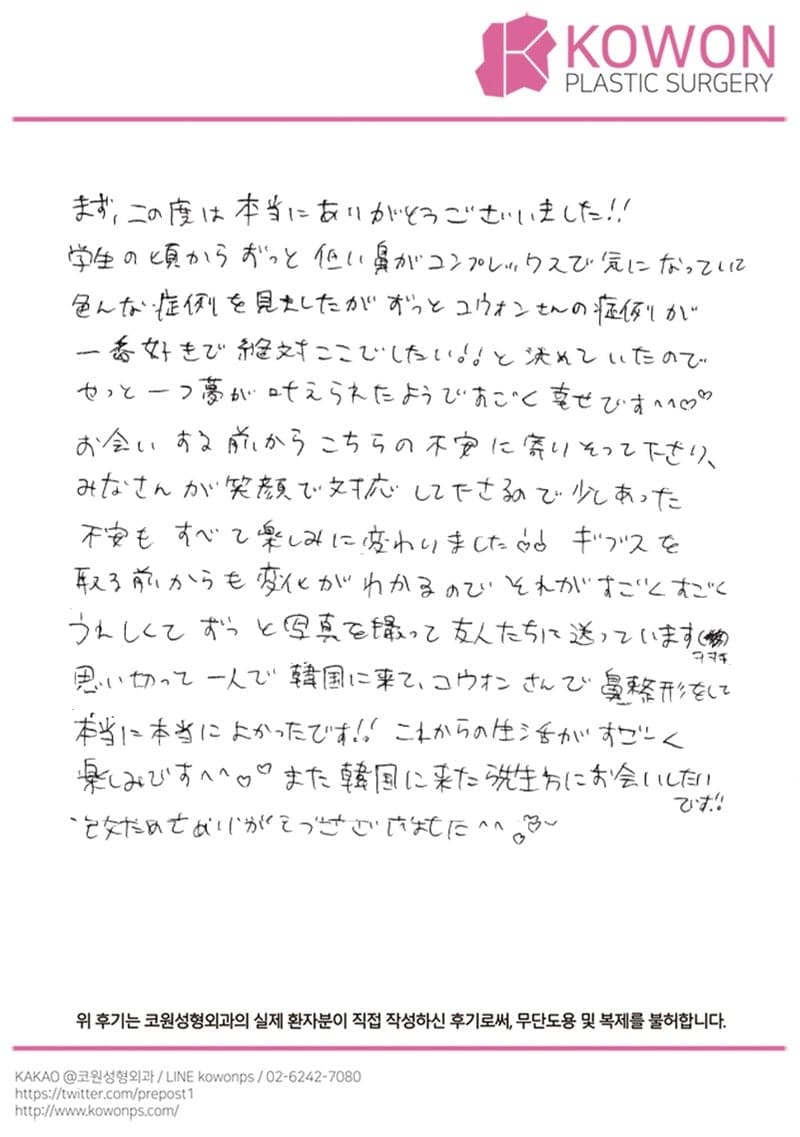 KOWON
PLASTIC SURGERY
まず、この度は本当にありがとうございました!!
学生の頃からずっと低い鼻がコンプレックスで気になっていて
色んな症例を見ましたがずっとコウォンさんの症例が
一番好きで絶対ここでしたい!!と決めていたので
やっと一つ夢が叶えられたようですごく幸せです^^♡♡
お会いする前からこちらの不安に寄りそって下さり、
みなさんが笑顔で対応して下さるので少しあった
不安もすべて楽しみに変わりました ギブスを
取る前からも変化がわかるのでそれがすごくすごく
うれしくてずっと写真を撮って友人たちに送っています
思い切って一人で韓国に来て、コウォンさんで鼻整形をして
本当に本当によかったです!! これからの生活がすご〜く
楽しみです^^♡♡ また韓国に来たら先生方にお会いしたい
です!!
ありがとうございました^^
위 후기는 코원성형외과의 실제 환자분이 직접 작성하신 후기로써, 무단도용 및 복제를 불허합니다.
KAKAO @코원성형외과 / LINE kowonps / 02-6242-7080
https://twitter.com/prepost1
http://www.kowonps.com/